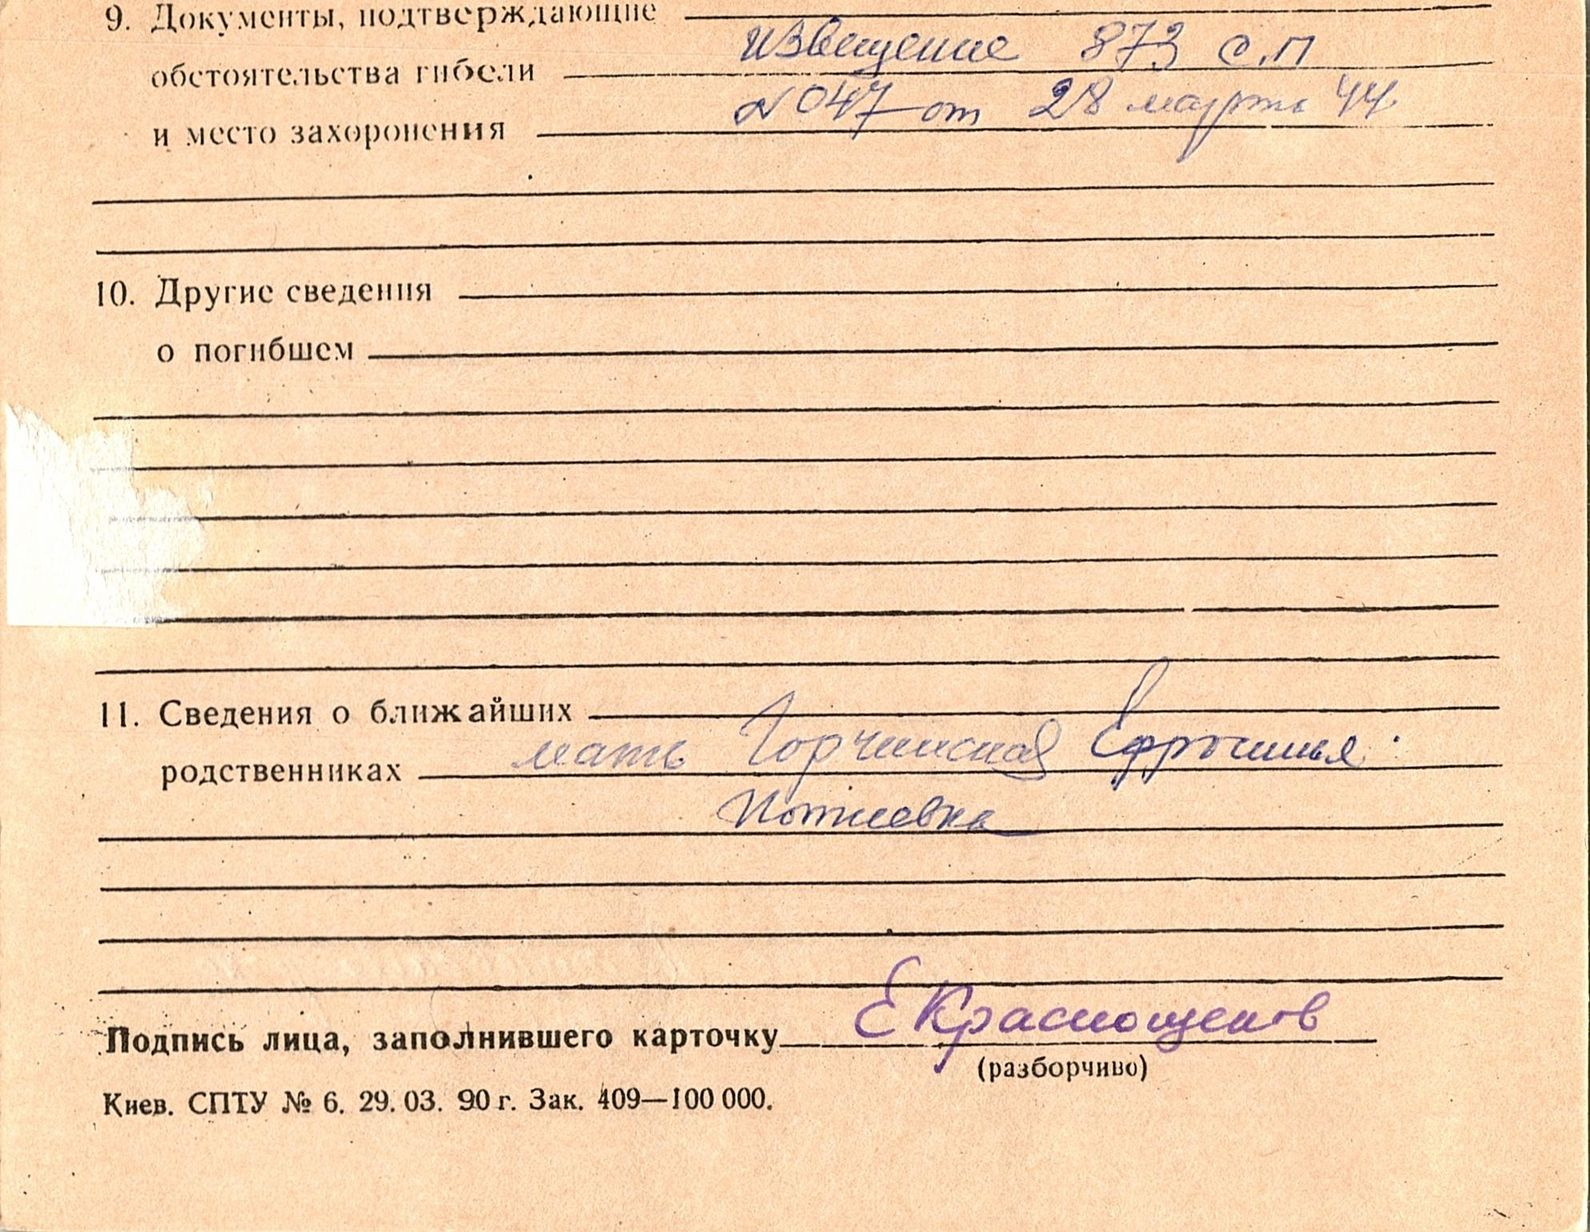 9. Документы, подтверждающие
извещение 873 с.п
обстоятельства гибели
№ 047 от 28 марта 44
и место захоронения
10. Другие сведения
о погибшем
11. Сведения о ближайших
родственниках мать Горчинская Ефросинья
Подпись лица, заполнившего карточку Е Краснощеков
(разборчиво)
Киев. СПТУ № 6. 29. 03. 90 г. Зак. 409—100 000.